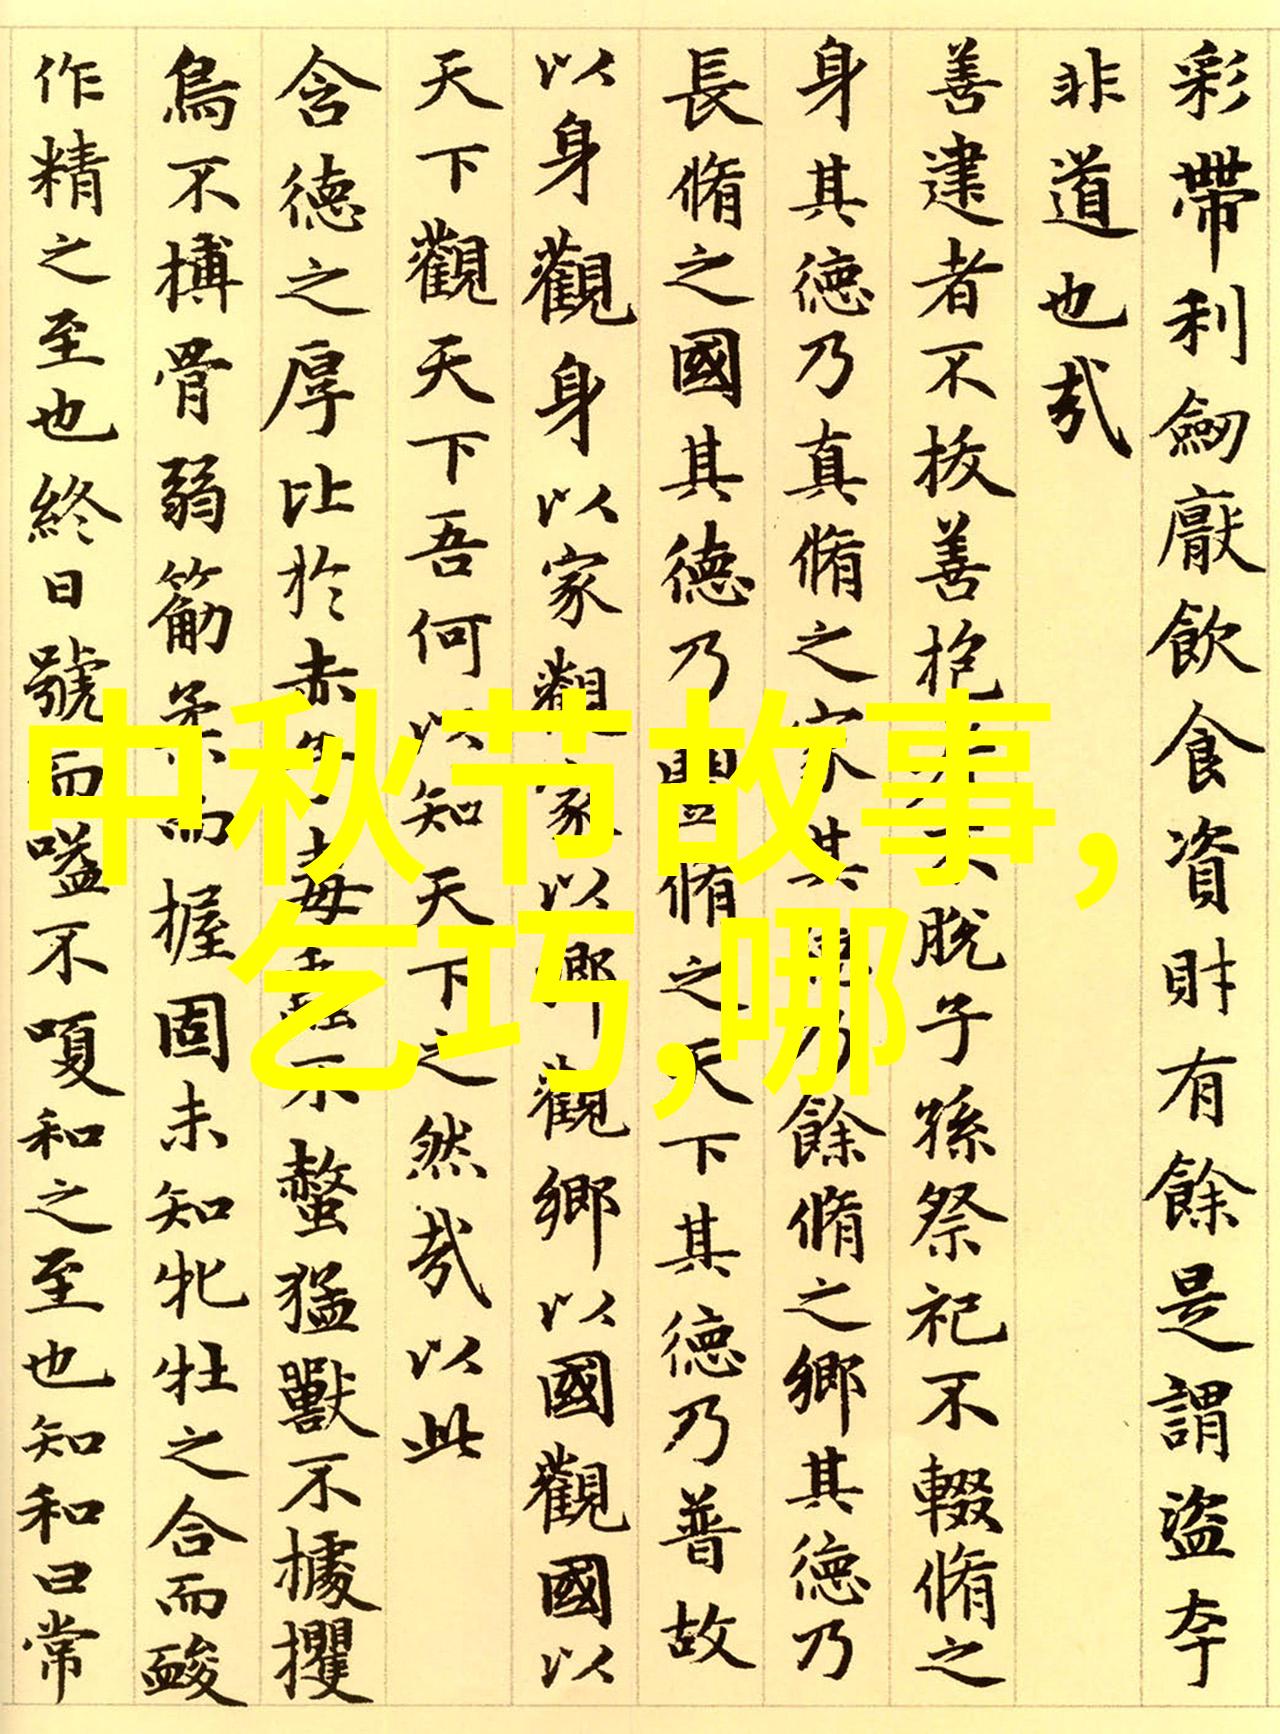 彩帶利劒厭飲食資財有餘是謂盜夸
非道也哉
善建者不拔善抱者不脫子孫祭祀不輟脩之
身其德乃真脩之家其德乃餘脩之鄉其德乃
長脩之國其德乃豐脩之天下其德乃普故
以身觀身以家觀家以鄉觀鄉以國觀國以
天下觀天下吾何以知天下之然哉以此
含德之厚比於赤子毒蟲不螫猛獸不據攫
鳥不搏骨弱筋柔而握固未知牝牡之合而酸
作精之至也終日號而嗌不嗄和之至也知和曰常
中秋节故事,
乞巧,哪